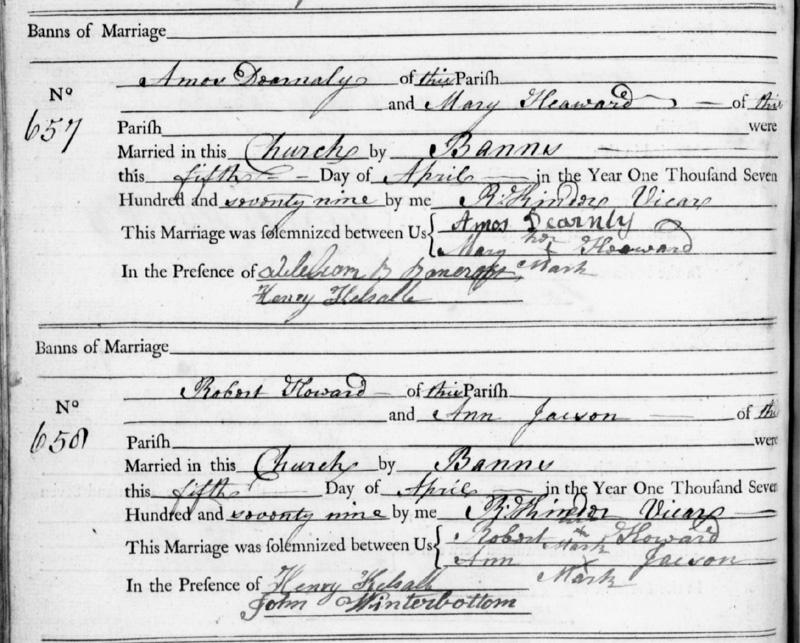 Banns of Marriage
Amos Dearnaly of this Parish
No
657
and Mary Heaward of this
Parish were
Married in this Church by Banns
this fifth Day of April in the Year One Thousand Seven
Hundred and seventy nine by me R: Kinder Vicar
This Marriage was solemnized between Us Amos Dearnly
Mary her Heaward
Mark
In the Presence of William B Bancroft
Henry Kelsall
Banns of Marriage
Robert Howard of this Parish
No
658
and Ann Jacson of the
Parish were
Married in this Church by Banns
this fifth Day of April in the Year One Thousand Seven
Hundred and seventy nine by me R: Kinder Vicar
This Marriage was solemnized between Us Robert his Howard
Mark
Ann Jacson
Mark
In the Presence of Henry Kelsall
John Winterbottom